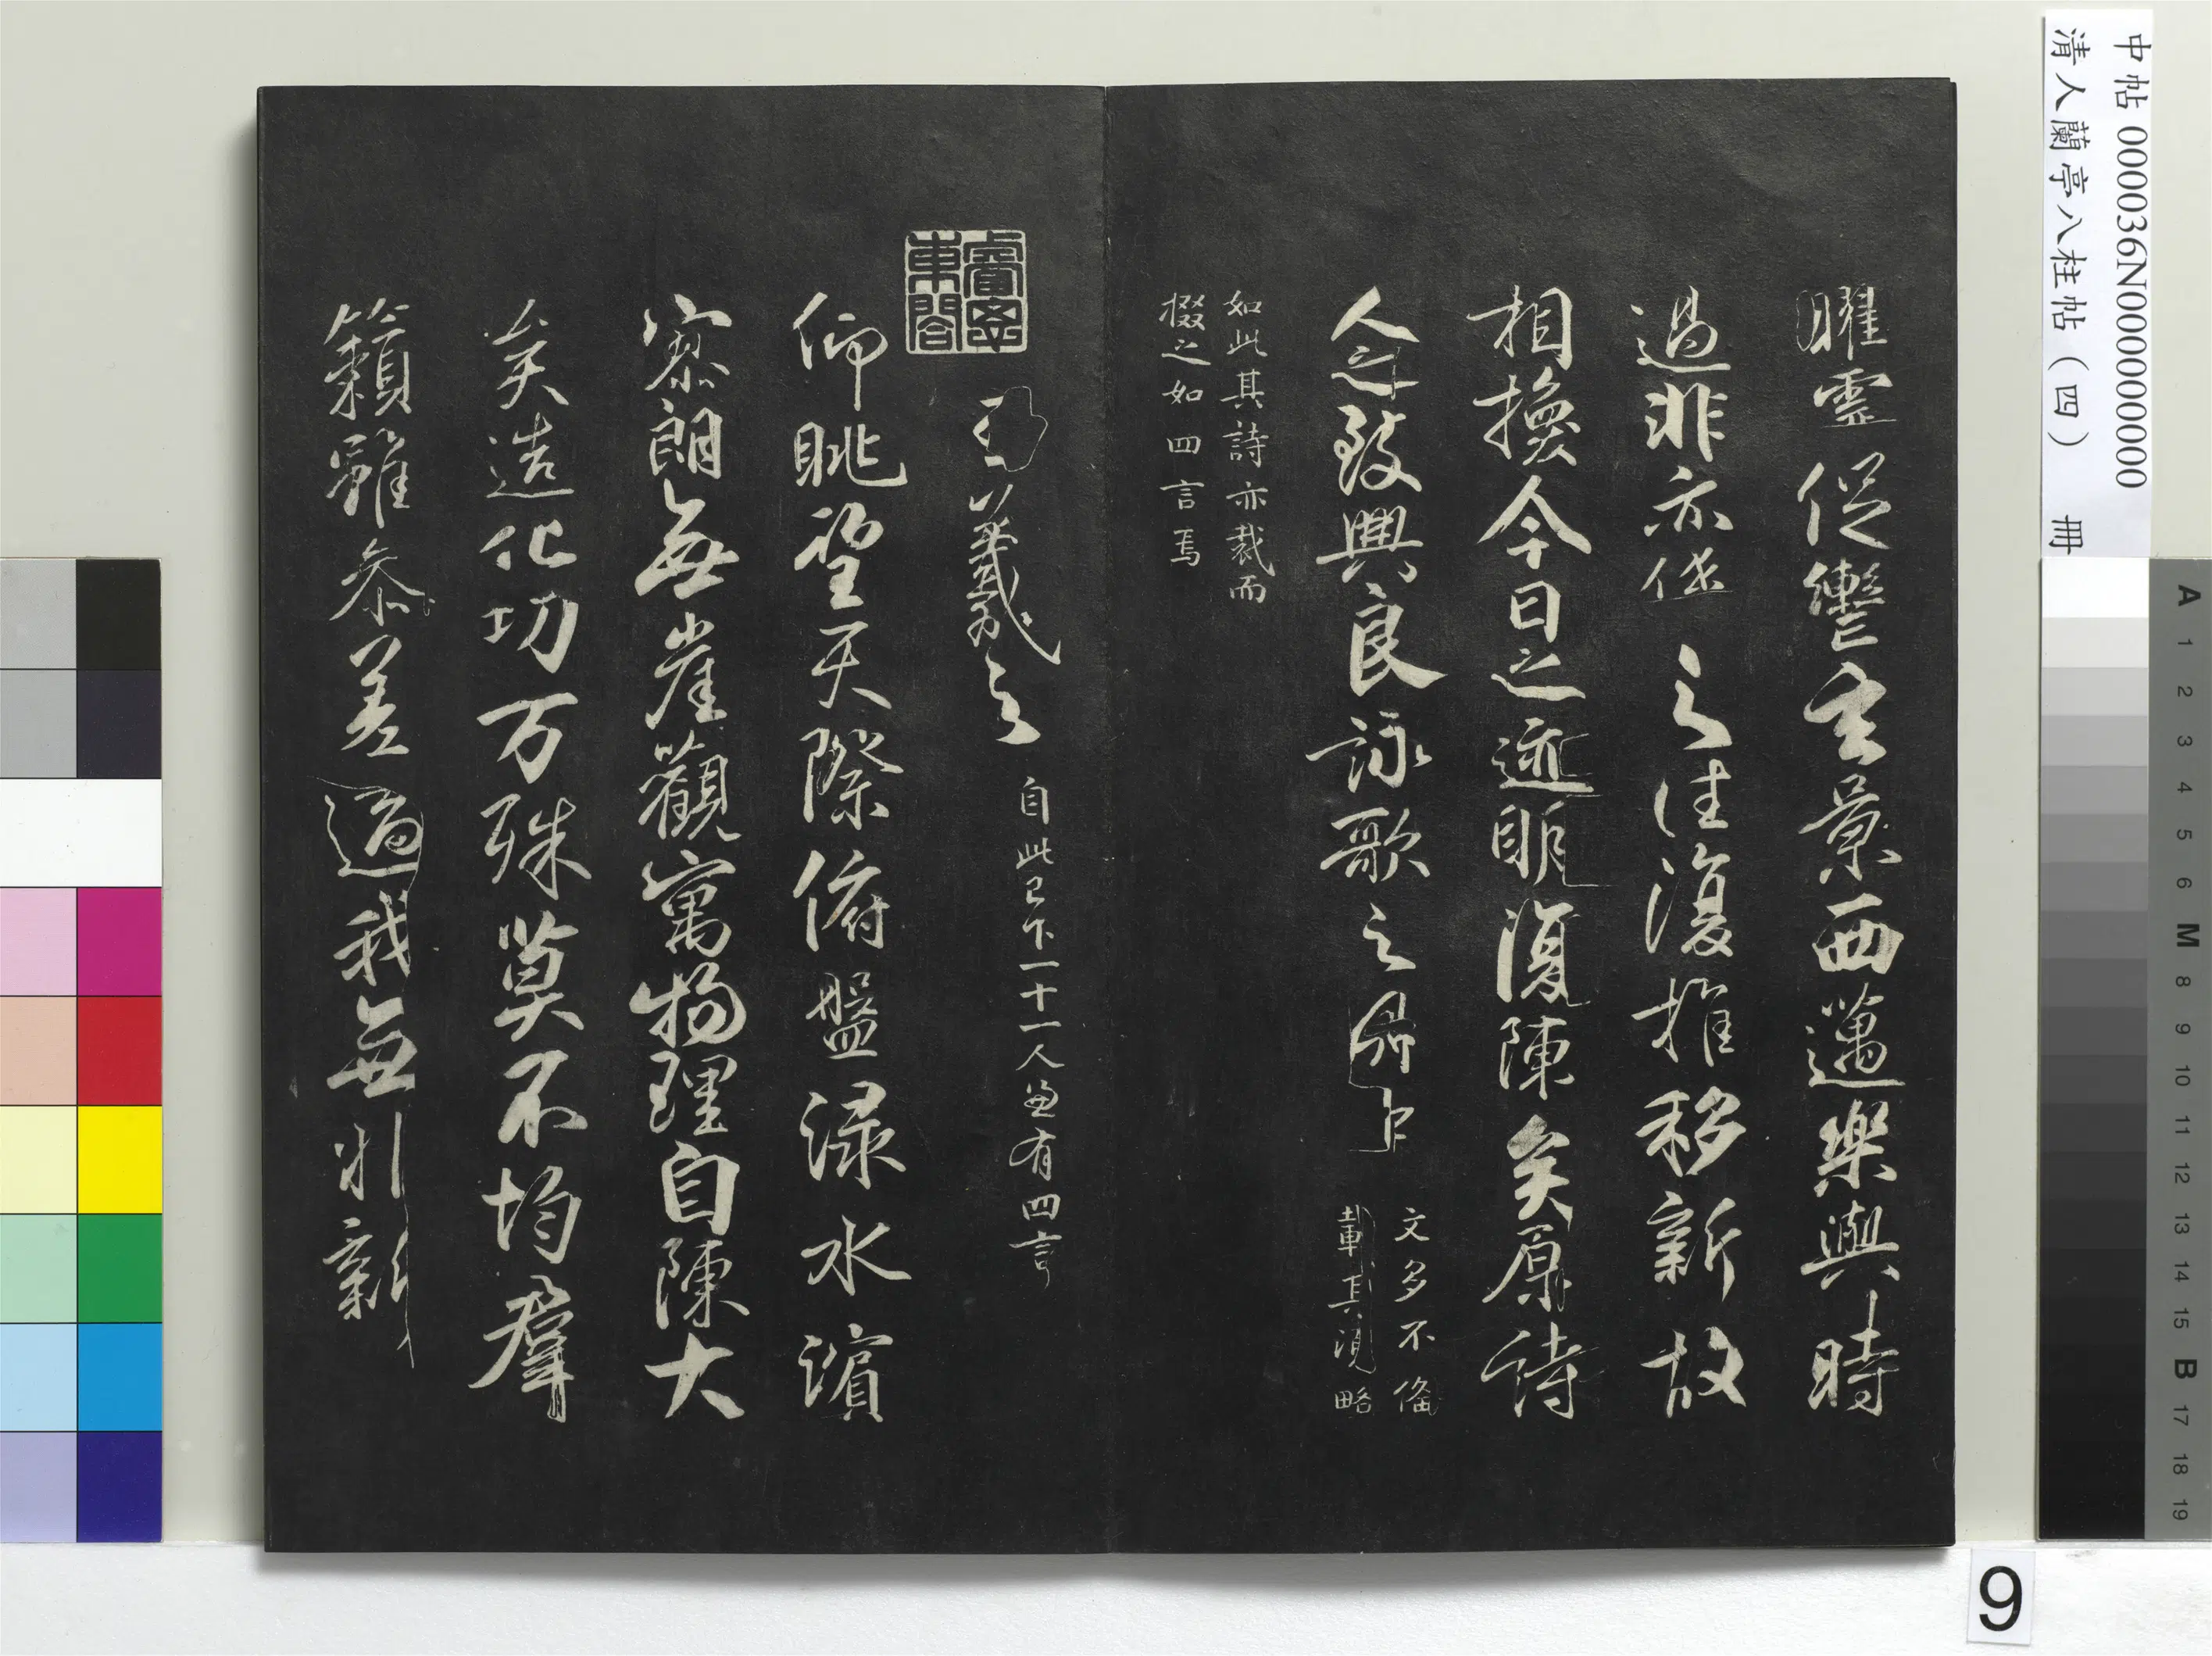 曜靈促轡玄景西邁樂與時
過悲亦係之往復推移新故
相換今日之迹明復陳矣原詩
人之致興良詠歌之有由
文多不備
載其
略
如此其詩亦裁而
掇之如四言焉
王羲之
自此已下一十一人兼有四言
仰眺望天際俯盤淥水濱
寥朗無崖觀寓物理自陳大
矣造化功万殊莫不均羣
籟雖參差適我無非新
中帖 000036N000000000
清人蘭亭八柱帖（四） 冊
A 1 2 3 4 5 6 M 8 9 10 11 12 13 14 15 B 17 18 19
9